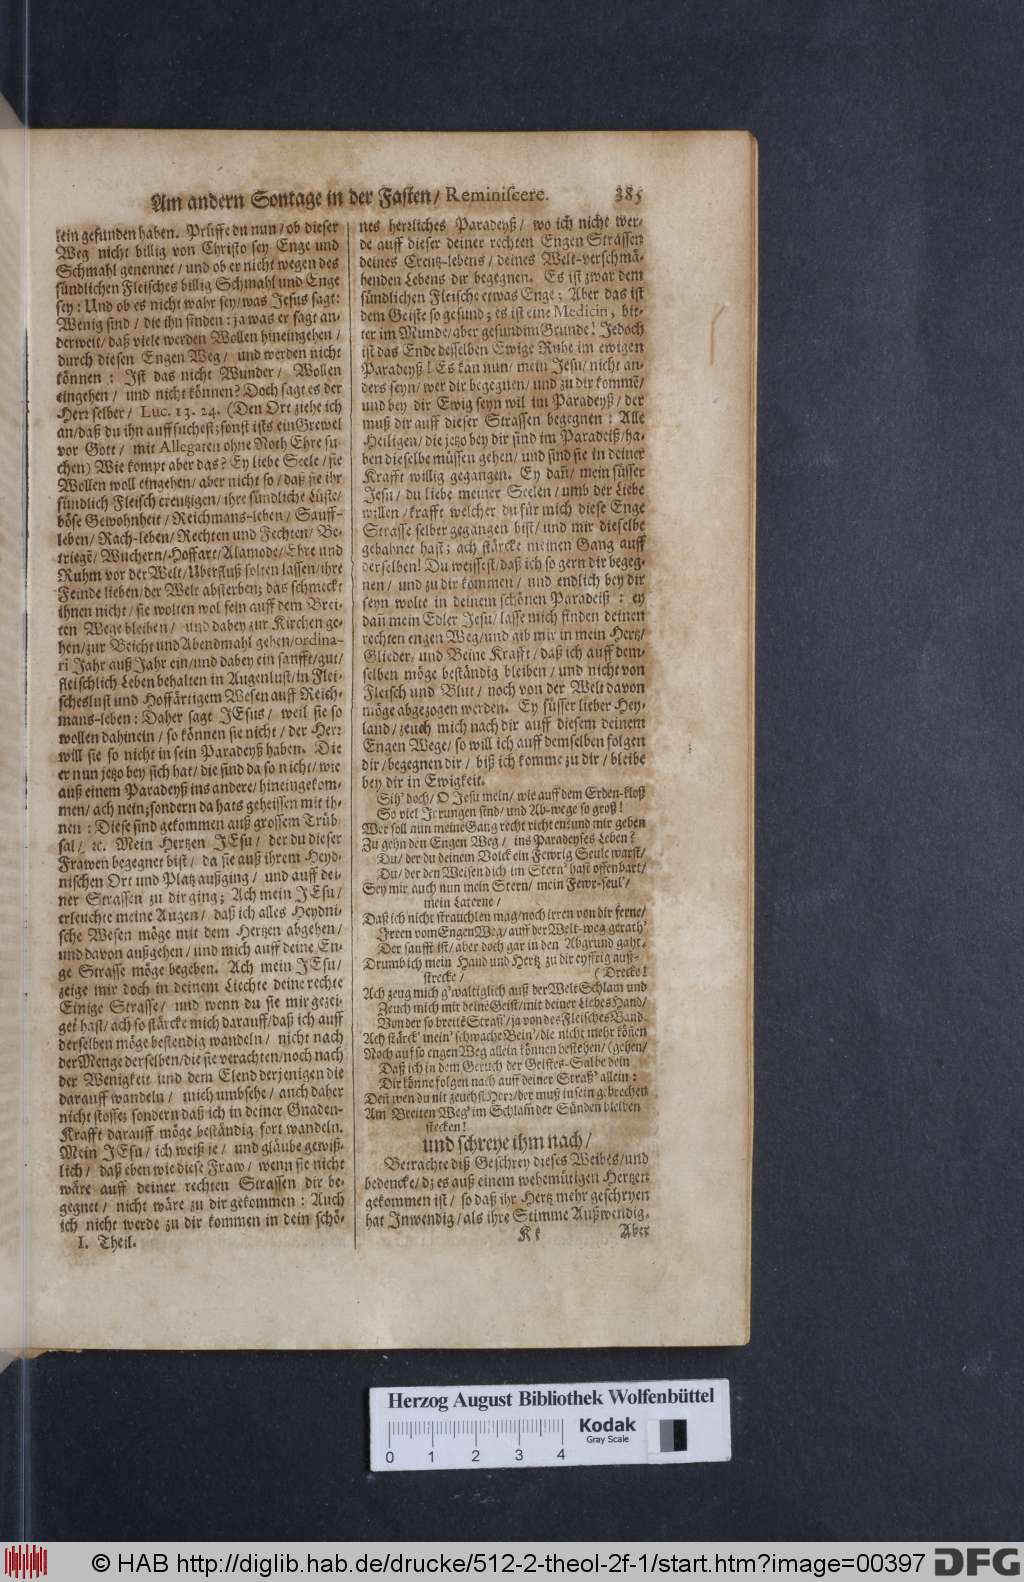 Am andern Sontage in der Fasten/ Reminiscere. 385
lein gefunden haben. Prüffe du nun/ ob dieser
Weg nicht billig von Christo sey Enge und
Schmahl genennet/ und ob er nicht wegen des
sündlichen Fleisches billig Schmahl und Enge
sey: Und ob es nicht wahr sey/ was Jesus sagt:
Wenig sind/ die ihn finden: ja was er sagt an-
derweit/ daß viele werden Wollen hineingehen/
durch diesen Engen Weg/ und werden nicht
können: Ist das nicht Wunder/ Wollen
eingehen/ und nicht können? Doch sagt es der
Herr selber/ Luc. 13. 24. (Den Ort ziehe ich
an/ daß du ihn auffsuchest; sonst ists ein Grewel
vor Gott/ mit Allegaten ohne Noth Ehre su-
chen) Wie kompt aber das? Ey liebe Seele/ sie
Wollen woll eingehen/ aber nicht so/ daß sie ihr
sündlich Fleisch creutzigen/ ihre sündliche Lüste/
böse Gewohnheit/ Reichmans-leben/ Sauff-
leben/ Rach-leben/ Rechten und Fechten/ Be-
triegē/ Wuchern/ Hoffart/ Alamode/ Ehre und
Ruhm vor der Welt/ Uberfluß solten lassen/ ihre
Feinde lieben/ der Welt absterben; das schmeckt
ihnen nicht/ sie wolten wol fein auff dem Brei-
ten Wege bleiben/ und dabey zur Kirchen ge-
hen/ zur Beicht und Abendmahl gehen/ ordina-
ri Jahr auß Jahr ein/ und dabey ein sanfft/ gut/
fleischlich Leben behalten in Augenlust/ in Flei-
scheslust und Hoffärtigem Wesen auff Reich-
mans-leben: Daher sagt JEsus/ weil sie so
wollen dahinein/ so können sie nicht/ der Herr
will sie so nicht in sein Paradeyß haben. Die
er nun jetzo bey sich hat/ die sind da so nicht/ wie
auß einem Paradeyß ins andere/ hineingekom-
men/ ach nein; sondern da hats geheissen mit ih-
nen: Diese sind gekommen auß grossem Trüb-
sal/ ꝛc. Mein Hertzen JEsu/ der du dieser
Frawen begegnet bist/ da sie auß ihrem Heyd-
nischen Ort und Platz außging/ und auff dei-
ner Strassen zu dir ging; Ach mein JEsu/
erleuchte meine Augen/ daß ich alles Heydni-
sche Wesen möge mit dem Hertzen abgehen/
und davon außgehen/ und mich auff deine En-
ge Strasse möge begeben. Ach mein JEsu/
zeige mir doch in deinem Liechte deine rechte
Einige Strasse/ und wenn du sie mir gezei-
get hast/ ach so stärcke mich darauff/ daß ich auff
derselben möge bestendig wandeln/ nicht nach
der Menge derselben/ die sie verachten/ noch nach
der Wenigkeit und dem Elend derjenigen die
darauff wandeln/ mich umbsehe/ auch daher
nicht stosse; sondern daß ich in deiner Gnaden-
Krafft darauff möge beständig fort wandeln.
Mein JEsu/ ich weiß je/ und gläube gewiß-
lich/ daß eben wie diese Fraw/ wenn sie nicht
wäre auff deiner rechten Strassen dir be-
gegnet/ nicht wäre zu dir gekommen: Auch
ich nicht werde zu dir kommen in dein schö-
I. Theil.
nes herrliches Paradeyß/ wo ich nicht wer-
de auff dieser deiner rechten Engen Strassen
deines Creutz-lebens/ deines Welt-verschmä-
henden Lebens dir begegnen. Es ist zwar dem
sündlichen Fleische etwas Enge; Aber das ist
dem Geiste so gesund; es ist eine Medicin, bit-
ter im Munde/ aber gesund im Grunde! Jedoch
ist das Ende desselben Ewige Ruhe im ewigen
Paradeyß! Es kan nun/ mein Jesu/ nicht an-
ders seyn/ wer dir begegnen/ und zu dir kommē/
und bey dir Ewig seyn wil im Paradeyß/ der
muß dir auff dieser Strassen begegnen: Alle
Heiligen/ die jetzo bey dir sind im Paradeiß/ ha-
ben dieselbe müssen gehen/ und sind sie in deiner
Krafft willig gegangen. Ey dañ/ mein süsser
Jesu/ du liebe meiner Seelen/ umb der Liebe
willen/ krafft welcher du für mich diese Enge
Strasse selber gegangen bist/ und mir dieselbe
gebahnet hast; ach stärcke meinen Gang auff
derselben! Du weissest/ daß ich so gern dir begeg-
nen/ und zu dir kommen/ und endlich bey dir
seyn wolte in deinem schönen Paradeiß: ey
dañ mein Edler Jesu/ lasse mich finden deinen
rechten engen Weg/ und gib mir in mein Hertz/
Glieder/ und Beine Krafft/ daß ich auff dem-
selben möge beständig bleiben/ und nicht von
Fleisch und Blut/ noch von der Welt davon
möge abgezogen werden. Ey süsser lieber Hey-
land/ zeuch mich nach dir auff diesem deinem
Engen Wege/ so will ich auff demselben folgen
dir/ begegnen dir/ biß ich komme zu dir/ bleibe
bey dir in Ewigkeit.
Sih' doch/ O Jesu mein/ wie auff dem Erden-kloß
So viel Irrungen sind/ und Ab-wege so groß!
Wer soll nun meine Gang recht richten? und mir geben
Zu gehn den Engen Weg/ ins Paradeyses Leben?
Du/ der du deinem Volck ein Fewrig Seule warst/
Du/ der den Weisen dich im Stern' hast offenbart/
Sey mir auch nun mein Stern/ mein Fewr-seul'/
mein Laterne/
Daß ich nicht strauchlen mag/ noch irren von dir ferne/
Irren vom Engen Weg/ auf der Welt-weg gerath'
Der saufft ist/ aber doch gar in den Abgrund gaht.
Drumb ich mein Hand und Hertz zu dir eyffrig auß-
strecke/ (Drecke!
Ach zeug mich g'waltiglich auß der Welt Schlam und
Zeuch mich mit deinē Geist/ mit deiner Liebes Hand/
Von der so breitē Straß'/ ja von des Fleisches Band.
Ach stärck' mein' schwache Bein'/ die nicht mehr köñen
Noch auf so engen Weg allein können bestehen/ (gehen/
Daß ich in dem Geruch der Geistes-Salbe dein
Dir könne folgen nach auff deiner Straß' allein:
Deñ wen du nit zeuchst Herr/ der muß in sein gebrechen
Am Breiten Weg' im Schlam̃ der Sünden bleiben
stecken!
und schreye ihm nach/
Betrachte diß Geschrey dieses Weibes/ und
bedencke/ dz es auß einem wehemütigen Hertzen
gekommen ist/ so daß ihr Hertz mehr geschryen
hat Inwendig/ als ihre Stimme Außwendig.
Kk Aber
Herzog August Bibliothek Wolfenbüttel
Kodak
Gray Scale
0 1 2 3 4
© HAB http://diglib.hab.de/drucke/512-2-theol-2f-1/start.htm?image=00397 DFG